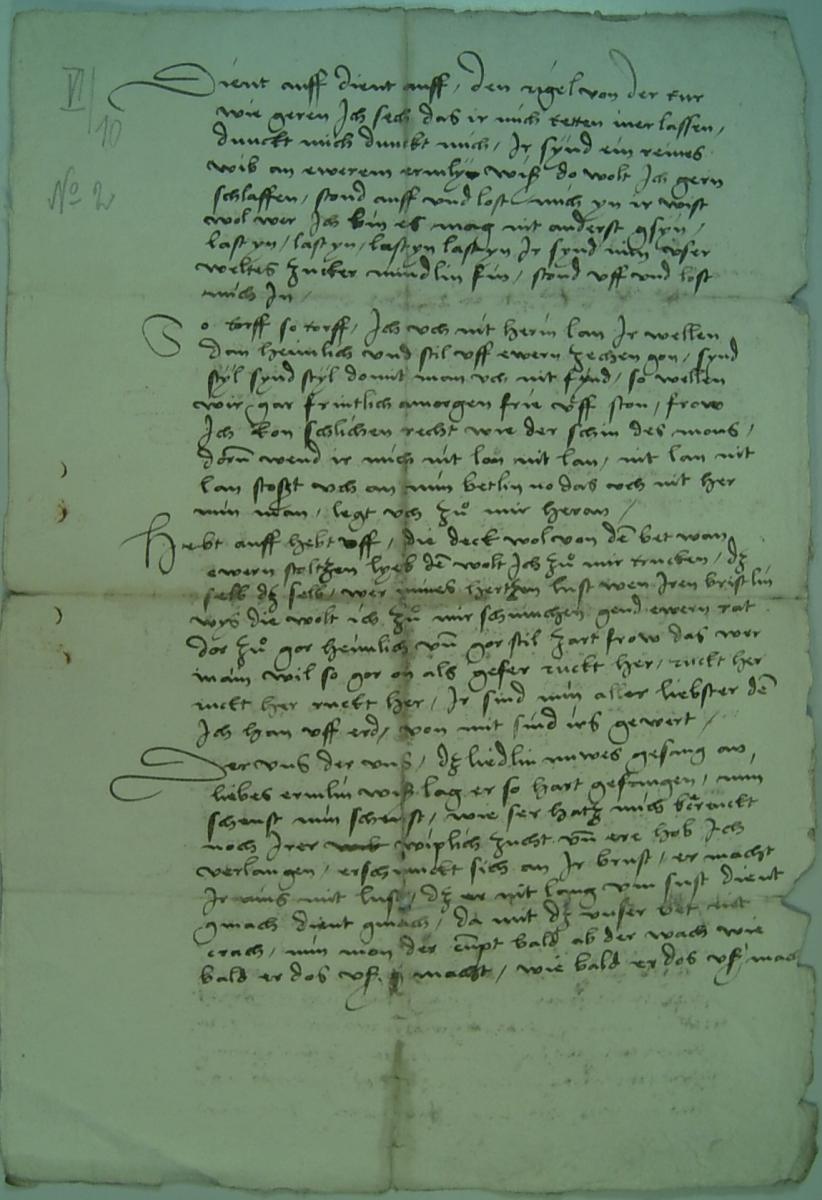 VI/10
No 2
Dient auff dient auff / den rigel von der tur
wie geren Ich sech das ir mich tetten iner lassen /
dunckt mich dunckt mich / Ir synd ein reines
wib an ewerem ermly wiß do wolt Ich gern
schlaffen / stond auff vnd lost mich yn ir wist
wol wer Ich bin es mag nit anderst gsyn /
last yn / last yn / last yn last yn Ir synd min vser
weltes zucker mindlin fin / stond vff vnd lost
mich In /
So torff so torff / Ich vch nit herin lan Ir wellen
dan heimlich vnd stil vff ewern zechen gon / synd
styl synd styl domit man vch nit fynd / so wellen
wir gar frintlich amorgen frie vff ston / frow
Ich kon schlichen recht wie der schin des mons /
dorn wend ir mich nit lon nit lan / nit lan nit
lan stoßt vch an min betlin no das vch nit her
min man / legt vch zu mir heran /
Hebt auff hebt vff / die deck wol von dem bet wan
ewern stoltzen lyeb den wolt Ich zu mir trucken / dz
selb dz selb / wer mines hertzen lust wen Iren bristlin
wys die wolt ich zu mir schmuchen gend ewern rat
dor zu gor heimlich vn gor stil zart frow das wer
main wil so gor on als gefer ruckt her / ruckt her
ruckt her ruckt her / Ir sind min aller liebster den
Ich han vff erd / von mit sind irs gewert /
Der vns der vns / dz liedlin nuwes gesang an
liebes ermlin wiß lag er so hart gefangen / min
schenst min schenst / wie ser hatz mich
noch Irer wiplich zucht vn ere hob Ich
verlangen / erschmuckt sich an Ir brust / er macht
Ir mit lust / dz er nit lang vm sust dient
gmach dient gmach / da mit dz vnser bet nit
erach / min mon der kumpt bald ab der wach wie
bald er dos vß macht / wie bald er dos vß mac